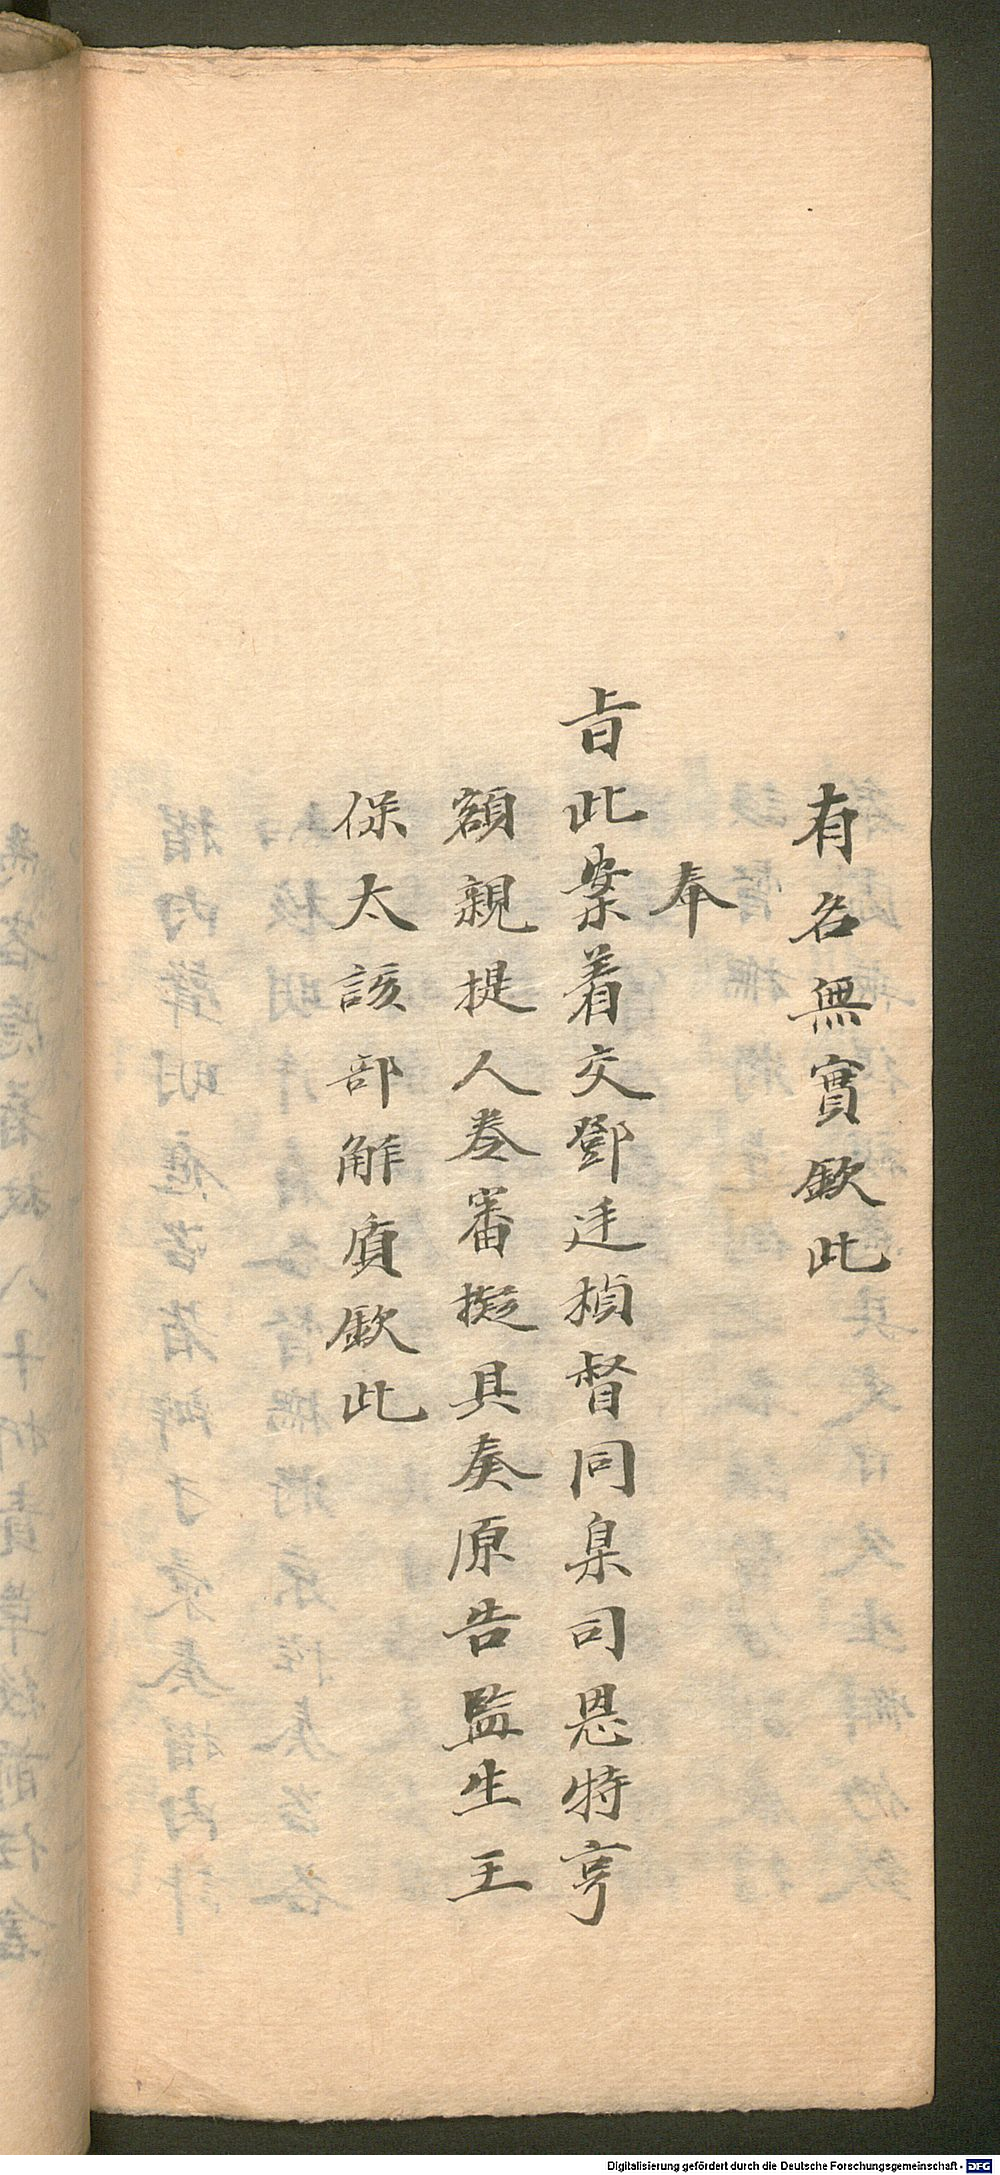 有名無實欽此
奉
旨此案着交鄧廷楨督同臬司恩特亨
額親提人卷審擬具奏原告監生王
保太該部解質欽此
Digitalisierung gefördert durch die Deutsche Forschungsgemeinschaft - DFG